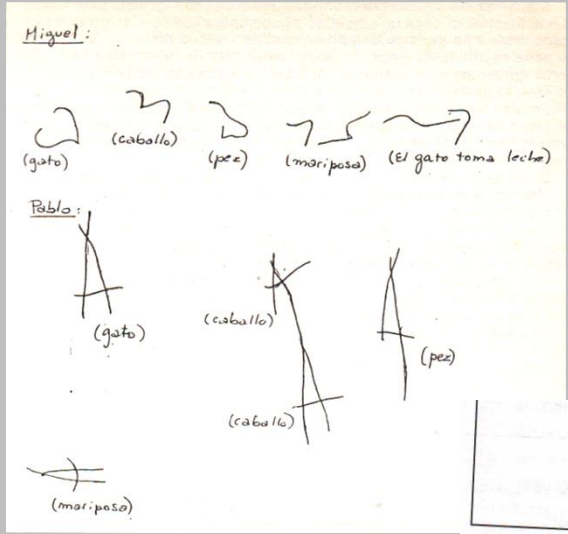 Miguel:
(gato) (caballo) (pez) (mariposa) (El gato toma leche)
Pablo:
(gato)
(caballo)
(pez)
(caballo)
(mariposa)